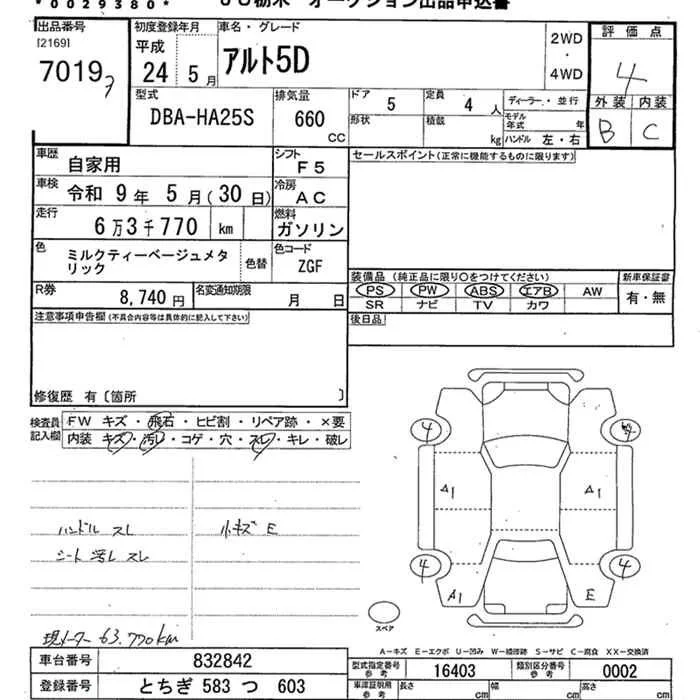 *0029380*　JU栃木　オークション出品申込書
出品番号
[2169]
7019
初度登録年月
平成
24 5月
車名・グレード
アルト5D
2WD
・
4WD
評価点
4
外装 内装
B C
型式
DBA-HA25S
排気量
660
CC
ドア
5
定員
4人
形状
積載
kg
ディーラー・並行
モデル年式 年
ハンドル 左・右
車歴
自家用
シフト
F5
セールスポイント(正常に機能するものに限ります)
車検
令和 9年 5月(30日)
冷房
AC
走行
6万3千770 km
燃料
ガソリン
色
ミルクティーベージュメタリック
色替
色コード
ZGF
装備品 (純正品に限り○をつけてください)
新車保証書
PS PW ABS エアB AW
有・無
SR ナビ TV カワ
R券
8,740円
名変通知期限
月 日
後日品
注意事項申告欄(不具合内容等は具体的に記入して下さい)
修復歴 有〔箇所 〕
検査員記入欄
FW キズ・飛石・ヒビ割・リペア跡・×要
内装 キズ・汚レ・コゲ・穴・スレ・キレ・破レ
ハンドル スレ
小キズ E
シート 汚レ スレ
現メーター 63,770km
4
4
A1
A1
4
4
A1
E
スペア
A－キズ E－エクボ U－凹み W－補修跡 S－サビ C－腐食 XX－交換済
車台番号
832842
型式指定番号
参考
16403
類別区分番号
参考
0002
登録番号
とちぎ 583 つ 603
車庫証明用
参考
長さ
cm
幅
cm
高さ
cm